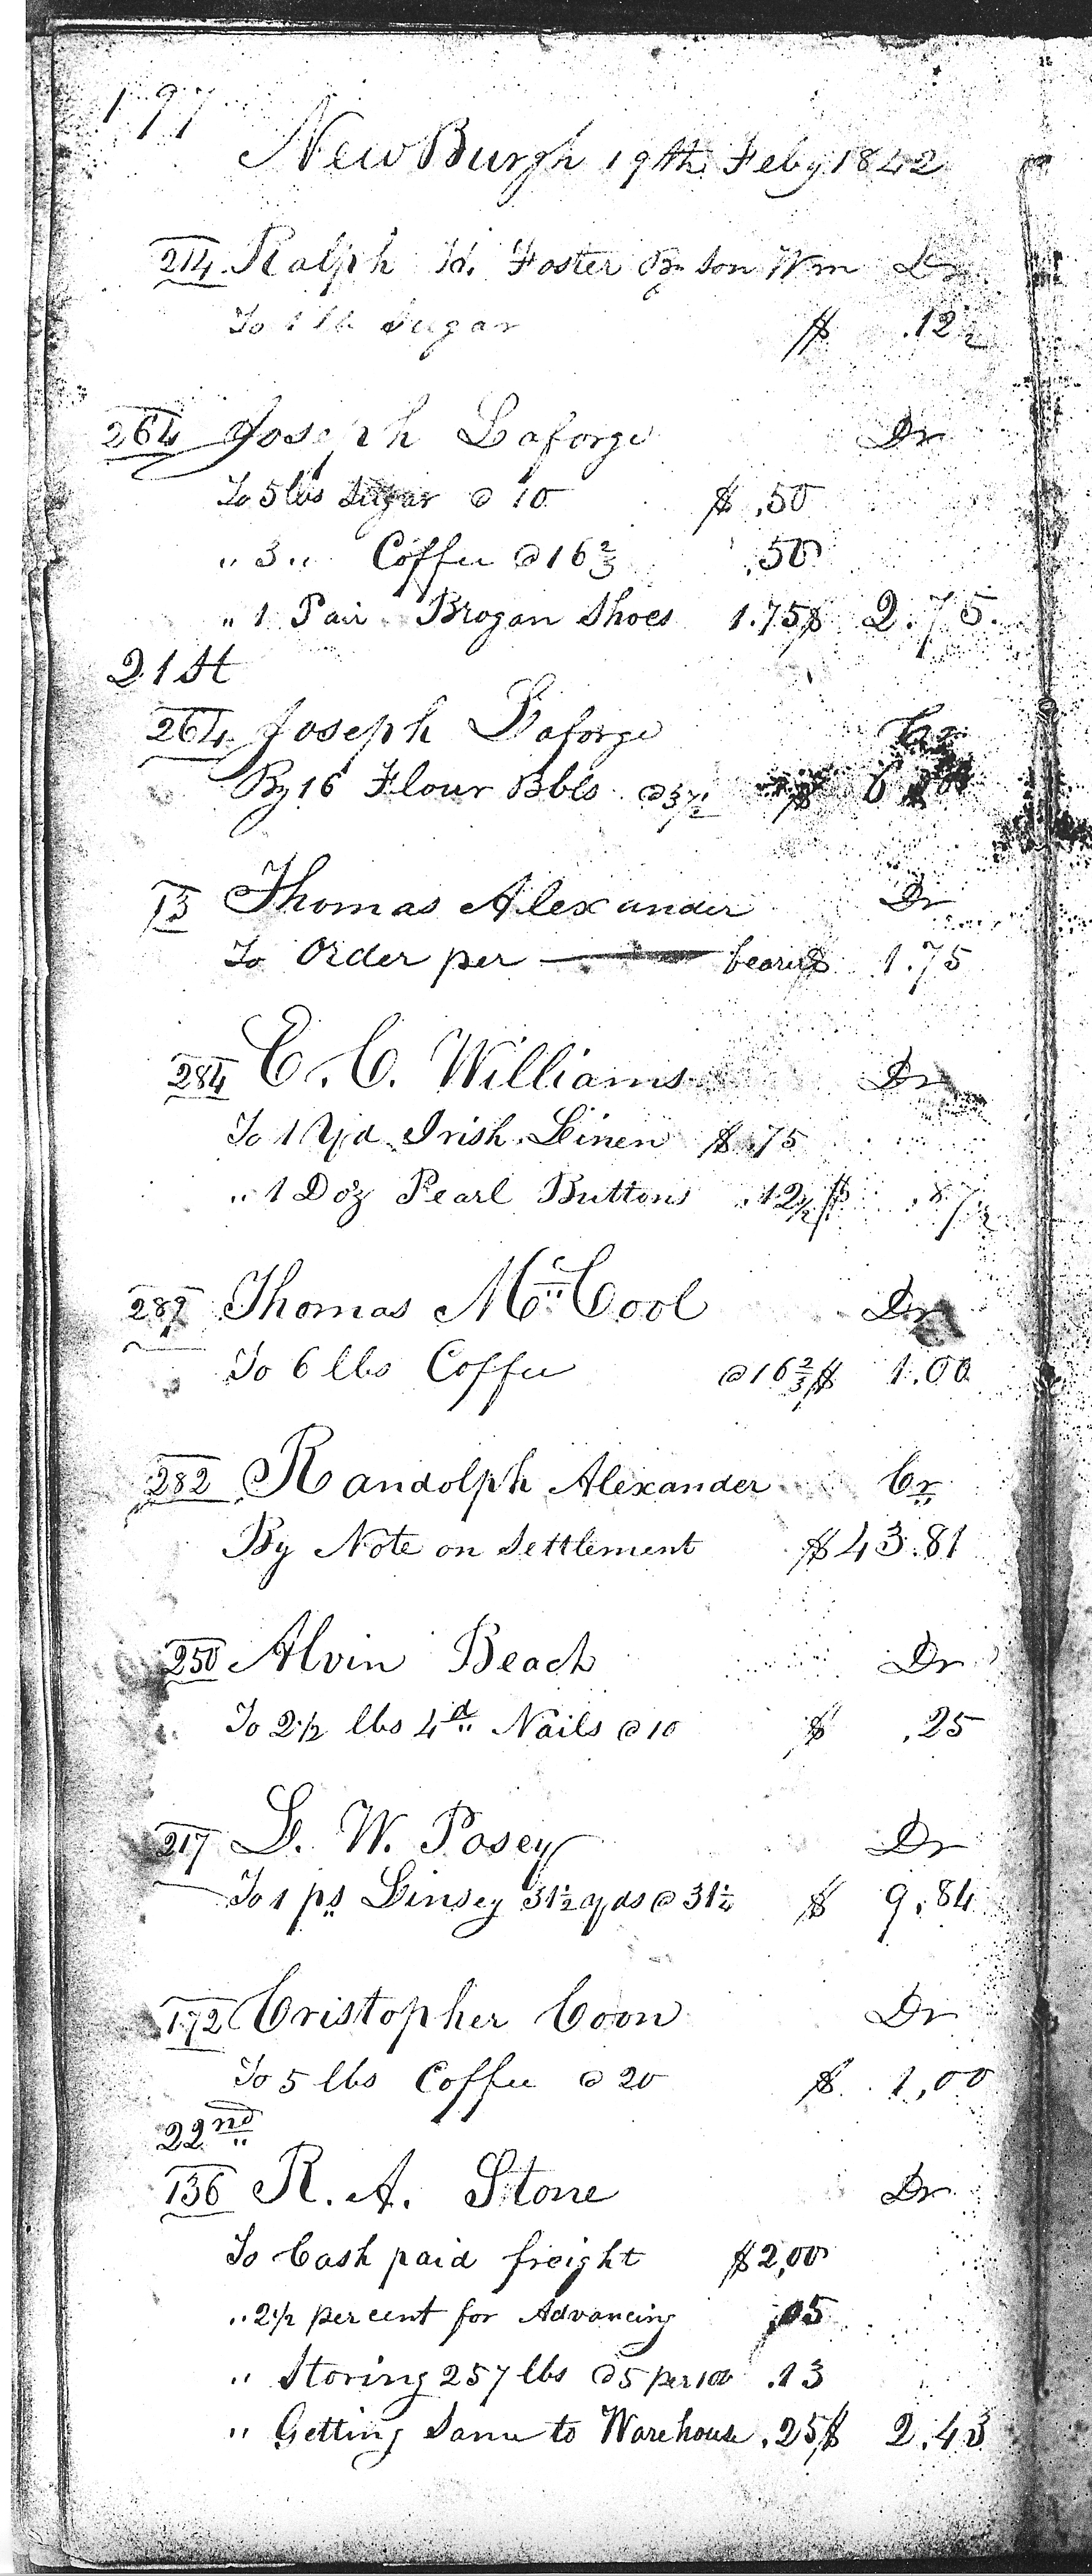 197
NewBurgh 19th Feby 1842
214 Ralph H. Foster By Son Wm Dr
To 1 lb Sugar $ .12½
264 Joseph Laforge Dr
To 5 lbs Sugar @ 10 $ .50
" 3 " Coffee @ 16⅔ .50
" 1 Pair Brogan Shoes 1.75 $ 2.75.
21st
264 Joseph Laforge Cr
By 16 Flour Bbls @ 37½ $
13 Thomas Alexander Dr
To Order per — bearer $ 1.75
284 C. C. Williams Dr
To 1 Yd Irish Linen $ .75
" 1 Doz Pearl Buttons .12½ $ .87½
289 Thomas McCool Dr
To 6 lbs Coffee @ 16⅔ $ 1.00
282 Randolph Alexander Cr
By Note on Settlement $ 43.81
250 Alvin Beach Dr
To 2½ lbs 4d Nails @ 10 $ .25
217 L. W. Posey Dr
To 1 ps Linsey 31½ yds @ 31¼ $ 9.84
172 Cristopher Coon Dr
To 5 lbs Coffee @ 20 $ 1,00
22nd
136 R. A. Stone Dr
To Cash paid freight $ 2,00
" 2½ per cent for Advancing ,05
" Storing 257 lbs @ 5 per 100 .13
" Getting Same to Warehouse .25 $ 2.43